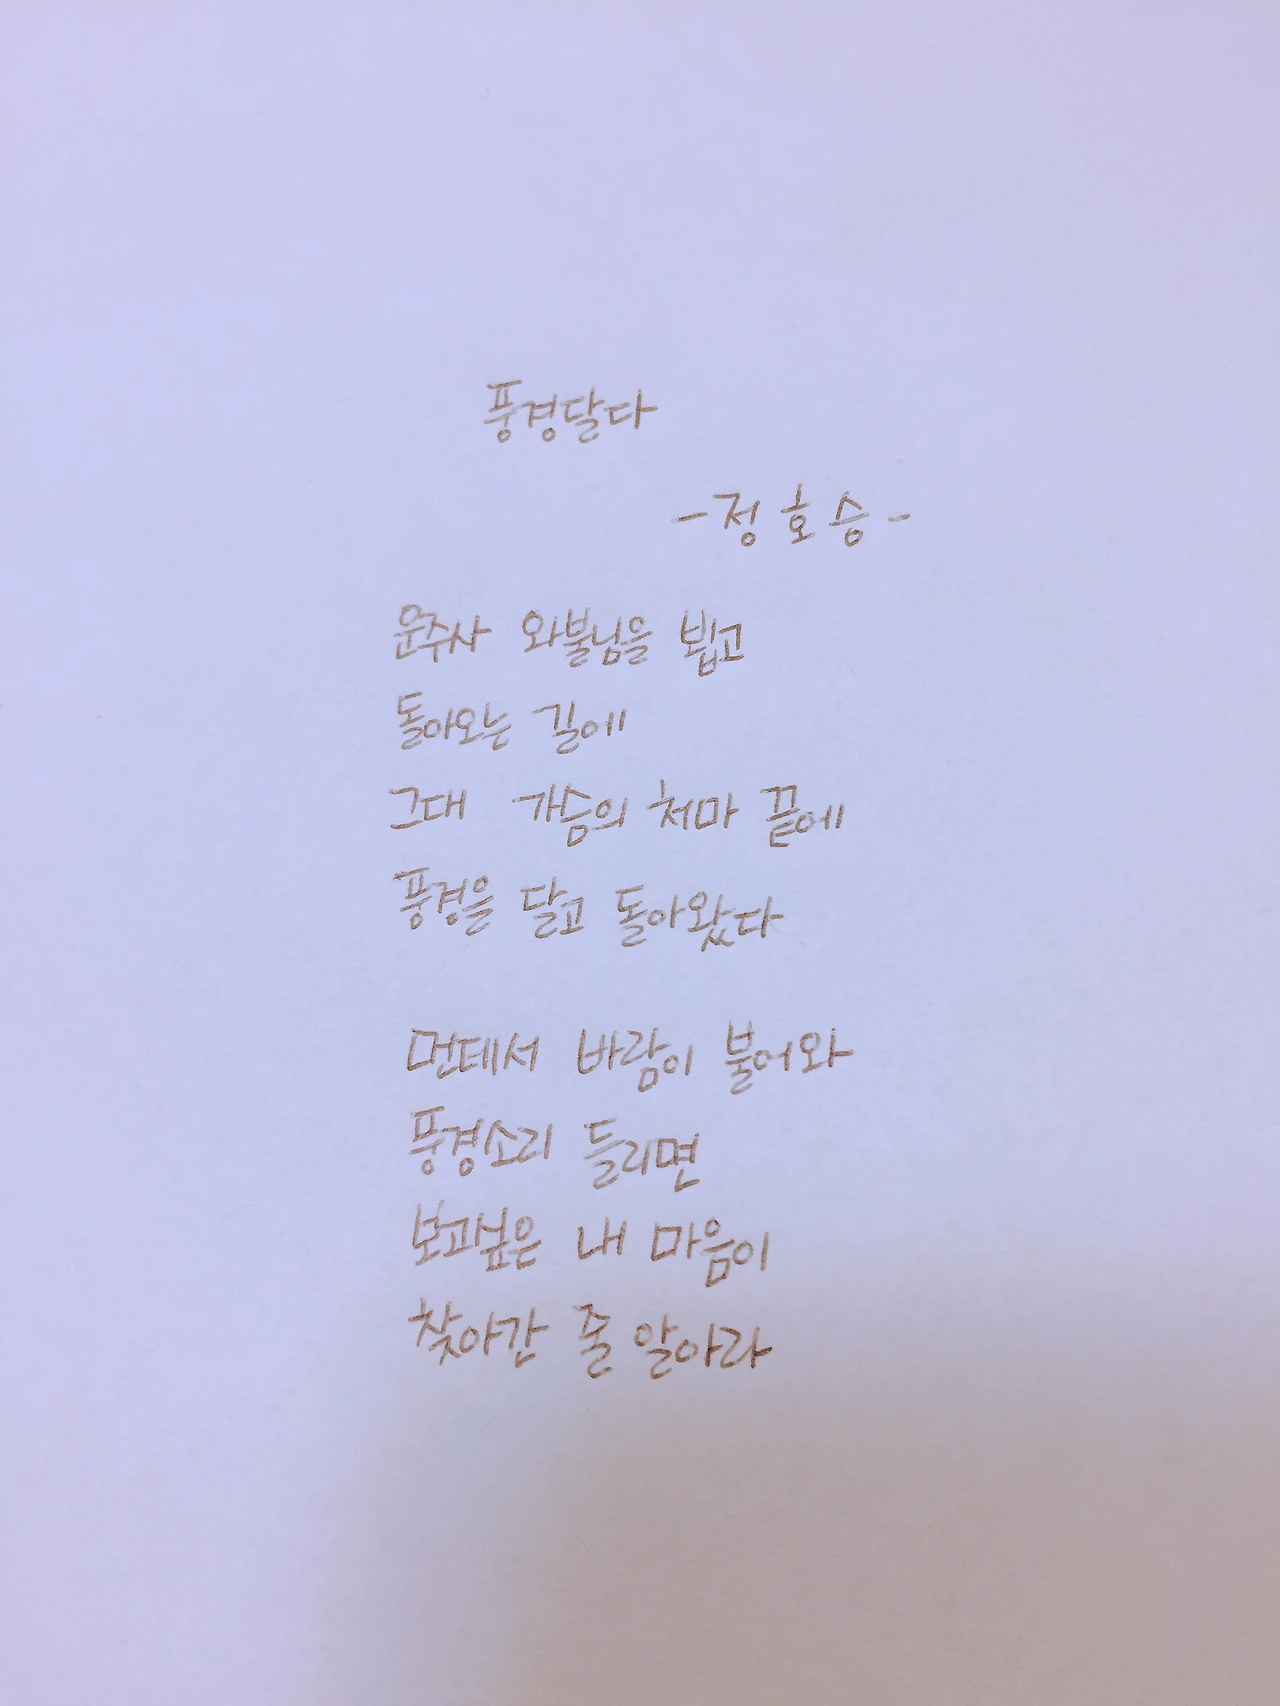 풍경달다
- 정 호 승 -
운주사 와불님을 뵙고
돌아오는 길에
그대 가슴의 처마 끝에
풍경을 달고 돌아왔다
먼데서 바람이 불어와
풍경소리 들리면
보고싶은 내 마음이
찾아간 줄 알아라